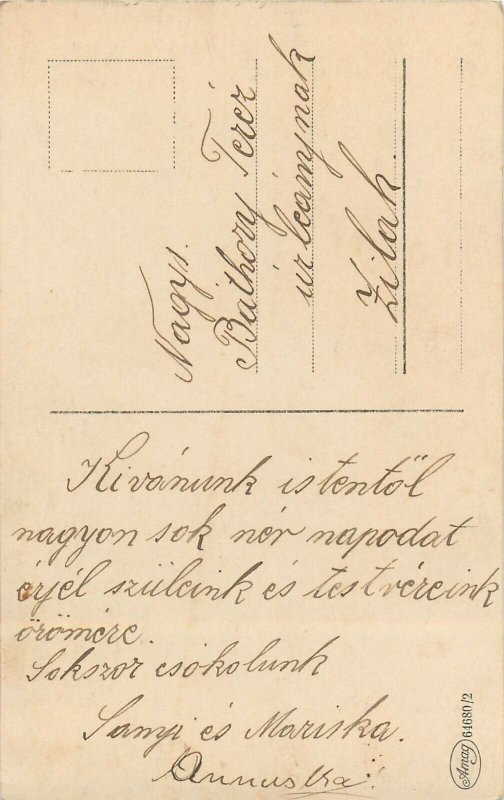 Nagys.
Báthory Teréz
úrleánynak
Zilah.
Kivánunk istentől
nagyon sok név napodat
érjél szüleink és testvéreink
örömére.
Sokszor csókolunk
Sanyi és Mariska.
Annuska!
Amag 61680/2